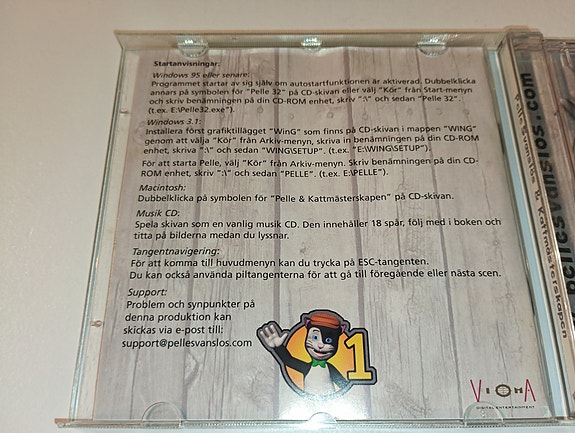 Startanvisningar:
Windows 95 eller senare:
Programmet startar av sig själv om autostartfunktionen är aktiverad. Dubbelklicka
annars på symbolen för "Pelle 32" på CD-skivan eller välj "Kör" från Start-menyn
och skriv benämningen på din CD-ROM enhet, skriv ":\" och sedan "Pelle 32".
(t.ex. E:\Pelle32.exe").
Windows 3.1:
Installera först grafiktillägget "WinG" som finns på CD-skivan i mappen "WING"
genom att välja "Kör" från Arkiv-menyn, skriva in benämningen på din CD-ROM
enhet, skriva ":\" och sedan "WING\SETUP". (t.ex. "E:\WING\SETUP").
För att starta Pelle, välj "Kör" från Arkiv-menyn. Skriv benämningen på din CD-
ROM enhet, skriv ":\" och sedan "PELLE". (t.ex. E:\PELLE").
Macintosh:
Dubbelklicka på symbolen för "Pelle & Kattmästerskapen" på CD-skivan.
Musik CD:
Spela skivan som en vanlig musik CD. Den innehåller 18 spår, följ med i boken och
titta på bilderna medan du lyssnar.
Tangentnavigering:
För att komma till huvudmenyn kan du trycka på ESC-tangenten.
Du kan också använda piltangenterna för att gå till föregående eller nästa scen.
Support:
Problem och synpunkter på
denna produktion kan
skickas via e-post till:
support@pellesvanslos.com
1
VIOMA
DIGITAL ENTERTAINMENT
Pelle Svanslös & Kattmästerskapen
pellesvanslos.com